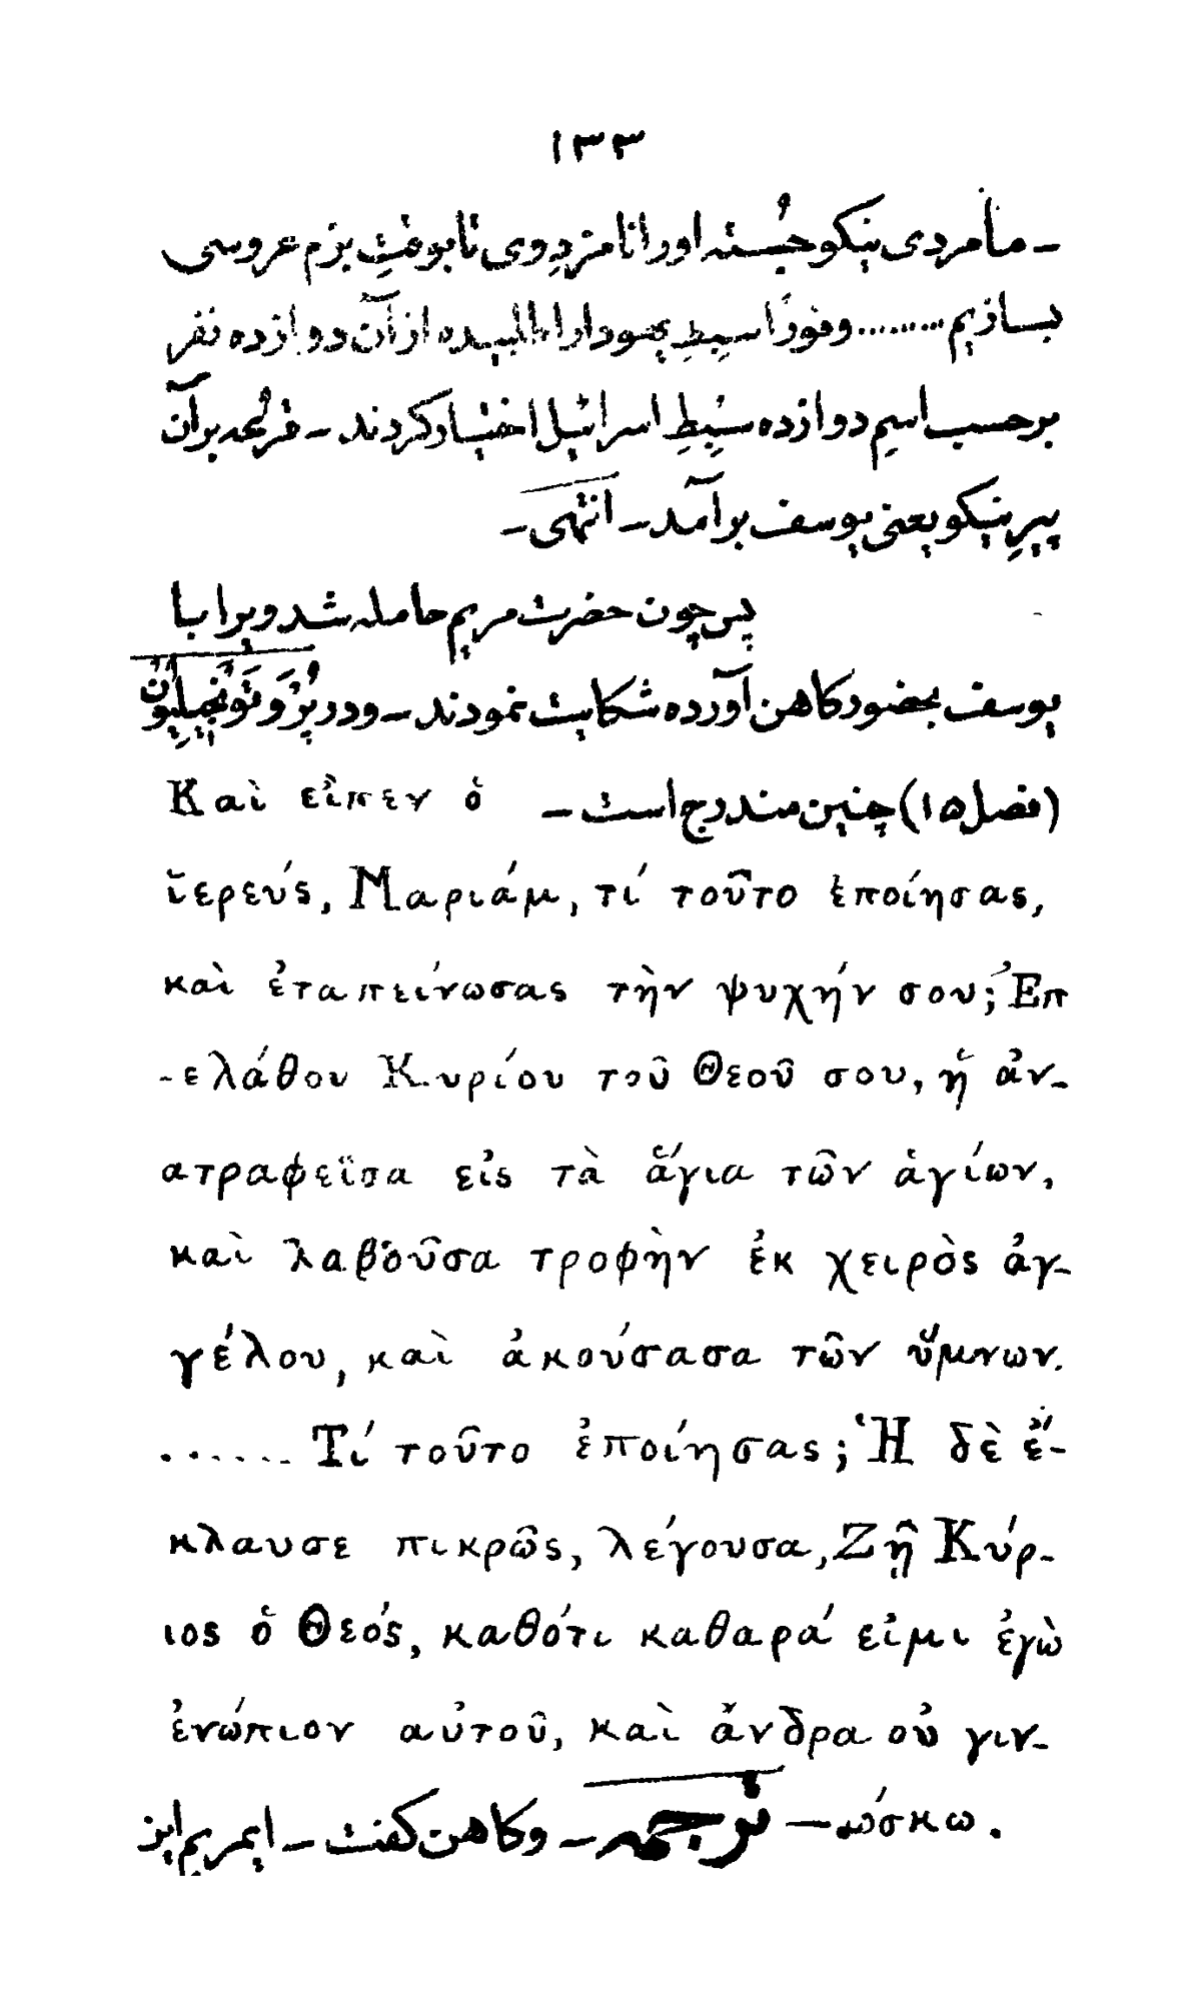 ١٣٣
ـ ما مردی نیکو جُسته او را نامزدِ وی تا بوقتِ بزم عروسی
بسازیم ......... و فوراً سِبطِ یهودا را طلبیده از آن دوازده نفر
بر حسب اسمِ دوازده سِبطِ اسرائیل اختیار کردند ـ قرعه بر آن
پیرِ نیکو یعنی یوسف برآمد ـ انتهی ـ
پس چون حضرت مریم حامله شد ویرا با
یوسف بحضور کاهن آورده شکایت نمودند ـ و در پُرُوَتوَنْجیلِیُونْ
(فصل ١٥) چنین مندرج است ـ Καὶ εἶπεν ὁ
ἱερεύς, Μαριάμ, τί τοῦτο ἐποίησας,
καὶ ἐταπείνωσας τὴν ψυχήν σου; Ἐπ
-ελάθου Κυρίου τοῦ Θεοῦ σου, ἡ ἀν-
ατραφεῖσα εἰς τὰ ἅγια τῶν ἁγίων,
καὶ λαβοῦσα τροφὴν ἐκ χειρὸς ἀγ-
γέλου, καὶ ἀκούσασα τῶν ὕμνων.
...... Τί τοῦτο ἐποίησας; Ἡ δὲ ἔ-
κλαυσε πικρῶς, λέγουσα, Ζῇ Κύρ-
ιος ὁ Θεός, καθότι καθαρά εἰμι ἐγὼ
ἐνώπιον αὐτοῦ, καὶ ἄνδρα οὐ γιν-
ώσκω. — ترجمه ـ و کاهن گفت ـ ایمریم این